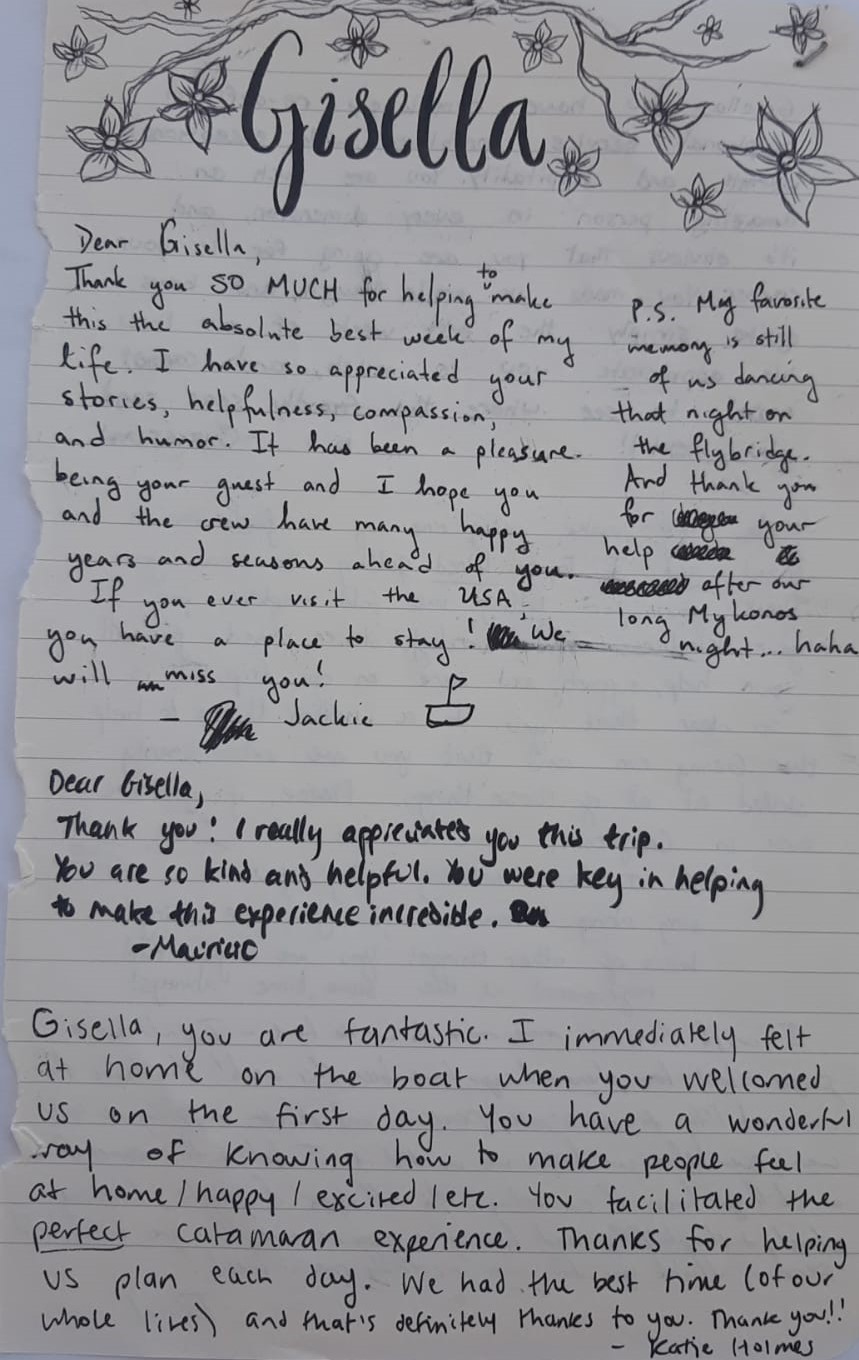 Gisella
Dear Gisella,
Thank you SO MUCH for helping to make
this the absolute best week of my
life. I have so appreciated your
stories, helpfulness, compassion,
and humor. It has been a pleasure
being your guest and I hope you
and the crew have many happy
years and seasons ahead of you.
If you ever visit the USA,
you have a place to stay! We
will miss you!
- Jackie
P.S. My favorite
memory is still
of us dancing
that night on
the flybridge.
And thank you
for your
help
after our
long Mykonos
night... haha
Dear Gisella,
Thank you! I really appreciated you this trip.
You are so kind and helpful. You were key in helping
to make this experience incredible.
Gisella, you are fantastic. I immediately felt
at home on the boat when you welcomed
us on the first day. You have a wonderful
way of knowing how to make people feel
at home/happy/excited/etc. You facilitated the
perfect catamaran experience. Thanks for helping
us plan each day. We had the best time (of our
whole lives) and that's definitely thanks to you. Thank you!!
- Katie Holmes